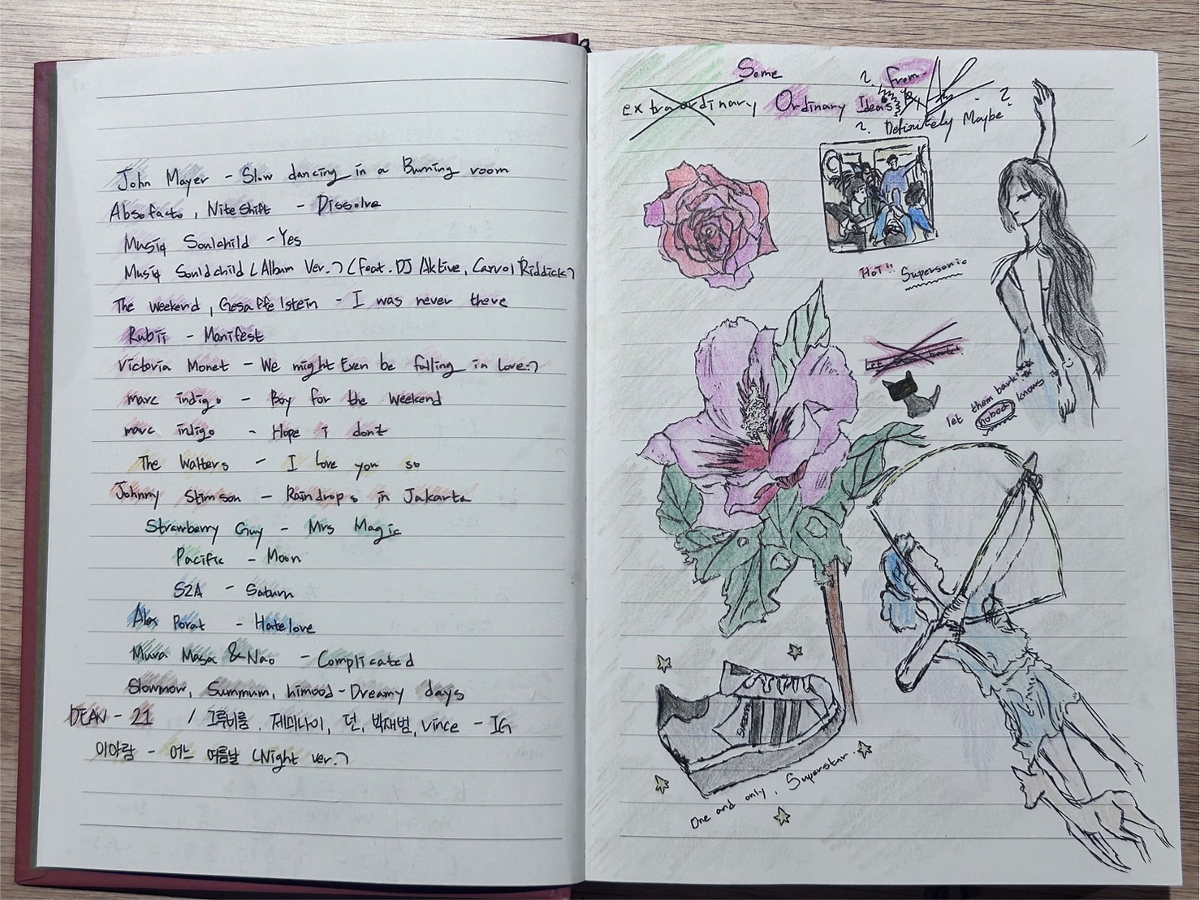 John Mayer - Slow dancing in a Burning room
Absofacto, NiteShift - Dissolve
Musiq Soulchild - Yes
Musiq Souldchild (Album Ver.) (feat. DJ Aktive, Carvol Riddick)
The weekend, Gesaffelstein - I was never there
Rubii - Manifest
Victoria Monet - We might Even be falling in love:)
marc indigo - Boy for the weekend
marc indigo - Hope i don't
The Walters - I love you so
Johnny Stimson - Raindrops in Jakarta
Strawberry Guy - Mrs Magic
Pacific - Moon
S2A - Saturn
Alex Porat - Hatelove
Mura Masa & Nao - Complicated
Slowmow, Summum, himood - Dreamy days
DEAN - 21 / 그루비룸, 제미나이, 던, 박재범, Vince - IG
이아람 - 어느 여름날 (Night ver.)
Some
extraordinary Ordinary Ideas
from
Definitely Maybe
Hot!! Supersonic
let them bark
nobody knows
One and only, Superstar.